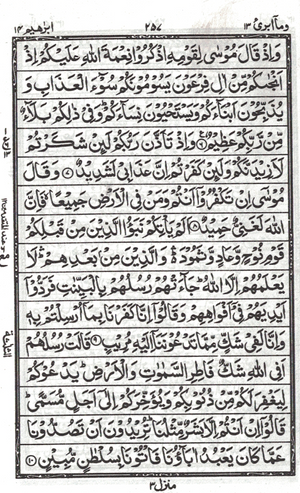 ابرٰهيم ١٤ ٢٥٧ وما ابرئ ١٣
وَاِذْ قَالَ مُوْسٰى لِقَوْمِهِ اذْكُرُوْا نِعْمَةَ اللّٰهِ عَلَيْكُمْ اِذْ
اَنْجٰىكُمْ مِّنْ اٰلِ فِرْعَوْنَ يَسُوْمُوْنَكُمْ سُوْٓءَ الْعَذَابِ وَ
يُذَبِّحُوْنَ اَبْنَآءَكُمْ وَيَسْتَحْيُوْنَ نِسَآءَكُمْ ؕ وَفِيْ ذٰلِكُمْ بَلَآءٌ
مِّنْ رَّبِّكُمْ عَظِيْمٌ ۝۶ وَاِذْ تَاَذَّنَ رَبُّكُمْ لَئِنْ شَكَرْتُمْ
لَاَزِيْدَنَّكُمْ وَلَئِنْ كَفَرْتُمْ اِنَّ عَذَابِيْ لَشَدِيْدٌ ۝۷ وَقَالَ
مُوْسٰٓى اِنْ تَكْفُرُوْٓا اَنْتُمْ وَمَنْ فِي الْاَرْضِ جَمِيْعًا ۙ فَاِنَّ
اللّٰهَ لَغَنِيٌّ حَمِيْدٌ ۝۸ اَلَمْ يَاْتِكُمْ نَبَؤُا الَّذِيْنَ مِنْ قَبْلِكُمْ
قَوْمِ نُوْحٍ وَّعَادٍ وَّثَمُوْدَ ۛؕ وَالَّذِيْنَ مِنْۢ بَعْدِهِمْ ۛؕ لَا
يَعْلَمُهُمْ اِلَّا اللّٰهُ ؕ جَآءَتْهُمْ رُسُلُهُمْ بِالْبَيِّنٰتِ فَرَدُّوْٓا
اَيْدِيَهُمْ فِيْٓ اَفْوَاهِهِمْ وَقَالُوْٓا اِنَّا كَفَرْنَا بِمَآ اُرْسِلْتُمْ بِهٖ
وَاِنَّا لَفِيْ شَكٍّ مِّمَّا تَدْعُوْنَنَآ اِلَيْهِ مُرِيْبٍ ۝۹ قَالَتْ رُسُلُهُمْ
اَفِي اللّٰهِ شَكٌّ فَاطِرِ السَّمٰوٰتِ وَالْاَرْضِ ؕ يَدْعُوْكُمْ
لِيَغْفِرَ لَكُمْ مِّنْ ذُنُوْبِكُمْ وَيُؤَخِّرَكُمْ اِلٰٓى اَجَلٍ مُّسَمًّى ؕ
قَالُوْٓا اِنْ اَنْتُمْ اِلَّا بَشَرٌ مِّثْلُنَا ؕ تُرِيْدُوْنَ اَنْ تَصُدُّوْنَا
عَمَّا كَانَ يَعْبُدُ اٰبَآؤُنَا فَاْتُوْنَا بِسُلْطٰنٍ مُّبِيْنٍ ۝۱۰
منزل ٣